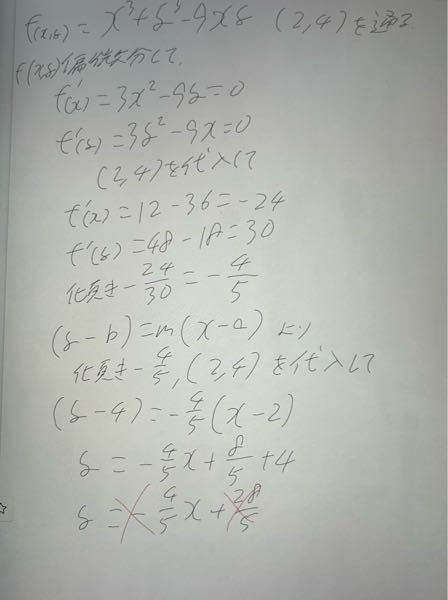 f(x,y) = x³+y³-9xy (2,4)を通る
f(x,y)偏微分して、
f'(x)=3x²-9y=0
f'(y)=3y²-9x=0
(2,4)を代入して
f'(x)=12-36=-24
f'(y)=48-18=30
傾き-24/30=-4/5
(y-b)=m(x-a)より
傾き-4/5,(2,4)を代入して
(y-4)=-4/5(x-2)
y=-4/5x+8/5+4
y=-4/5x+28/5